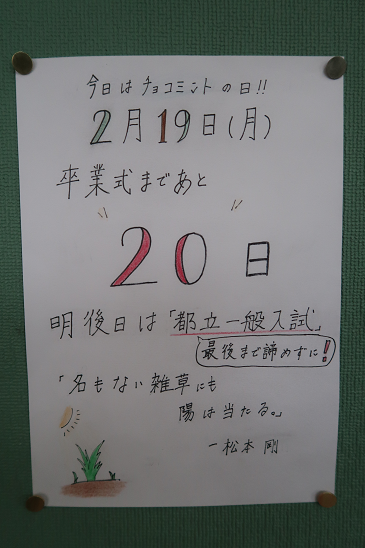 今日はチョコミントの日!!
2月19日(月)
卒業式まであと
20日
明後日は「都立一般入試」
最後まで諦めずに!
「名もない雑草にも
陽は当たる。」
－松本 剛